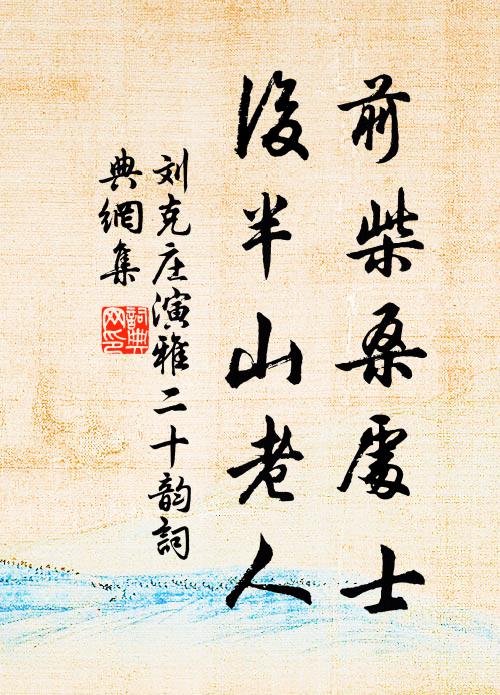 前柴桑處士
後半山老人
刘克庄演雅二十韵詞
典網集
詞典網印